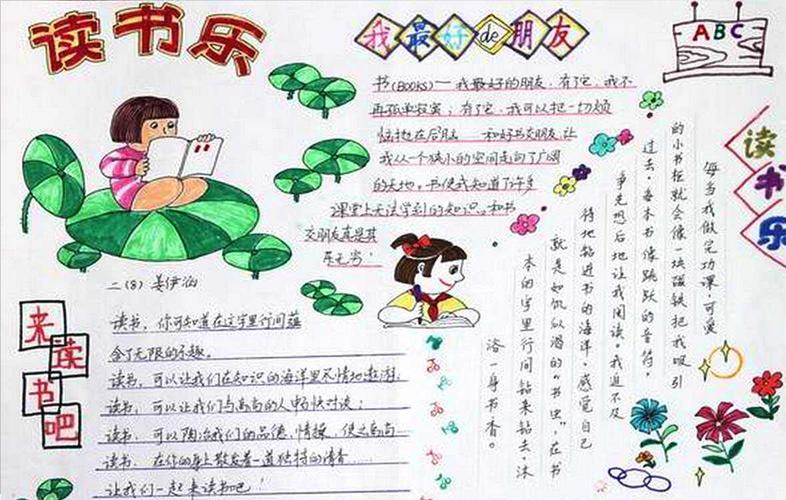 读书乐
我最好de朋友
ABC
书(BOOKS)—我最好的朋友，有了它，我不
再孤单寂寞；有了它，我可以把一切烦
恼抛在后脑 和好书交朋友，让
我从一个狭小的空间走向了广阔
的天地。书使我知道了许多
课堂上无法学到的知识。和书
交朋友真是其
乐无穷！
读书乐
每当我做完功课，可爱
的小书柜就会像一块磁铁把我吸引
过去。每本书像跳跃的音符，
争先恐后地让我阅读。我迫不及
待地钻进书的海洋，感觉自己
就是如饥似渴的“书虫”，在书
本的字里行间钻来钻去，沐
浴一身书香。
二(8) 姜伊
来读书吧
读书，你可知道在这字里行间蕴
含了无限的乐趣。
读书，可以让我们在知识的海洋里尽情地遨游；
读书，可以让我们与高尚的人畅快对谈；
读书，可以陶冶我们的品德，情操，使之高尚
读书，在你的身上散发着一道独特的清香……
让我们一起来读书吧！